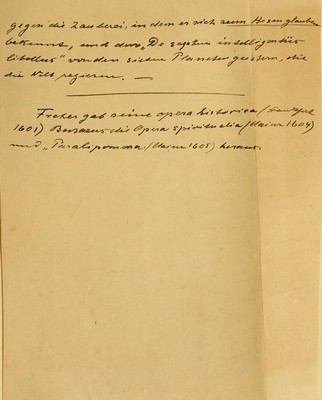 gegen die Zauberei, in dem er sich zum Hexenglauben
bekennt, und den „De septem intelligentiis
libellus" von den sieben Planetengeistern, die
die Welt regieren. —
Freher gab seine opera historica (Frankfurt
1601) Busaeus die Opera spiritualia (Mainz 1604)
und „Paralipomena (Mainz 1605) heraus.